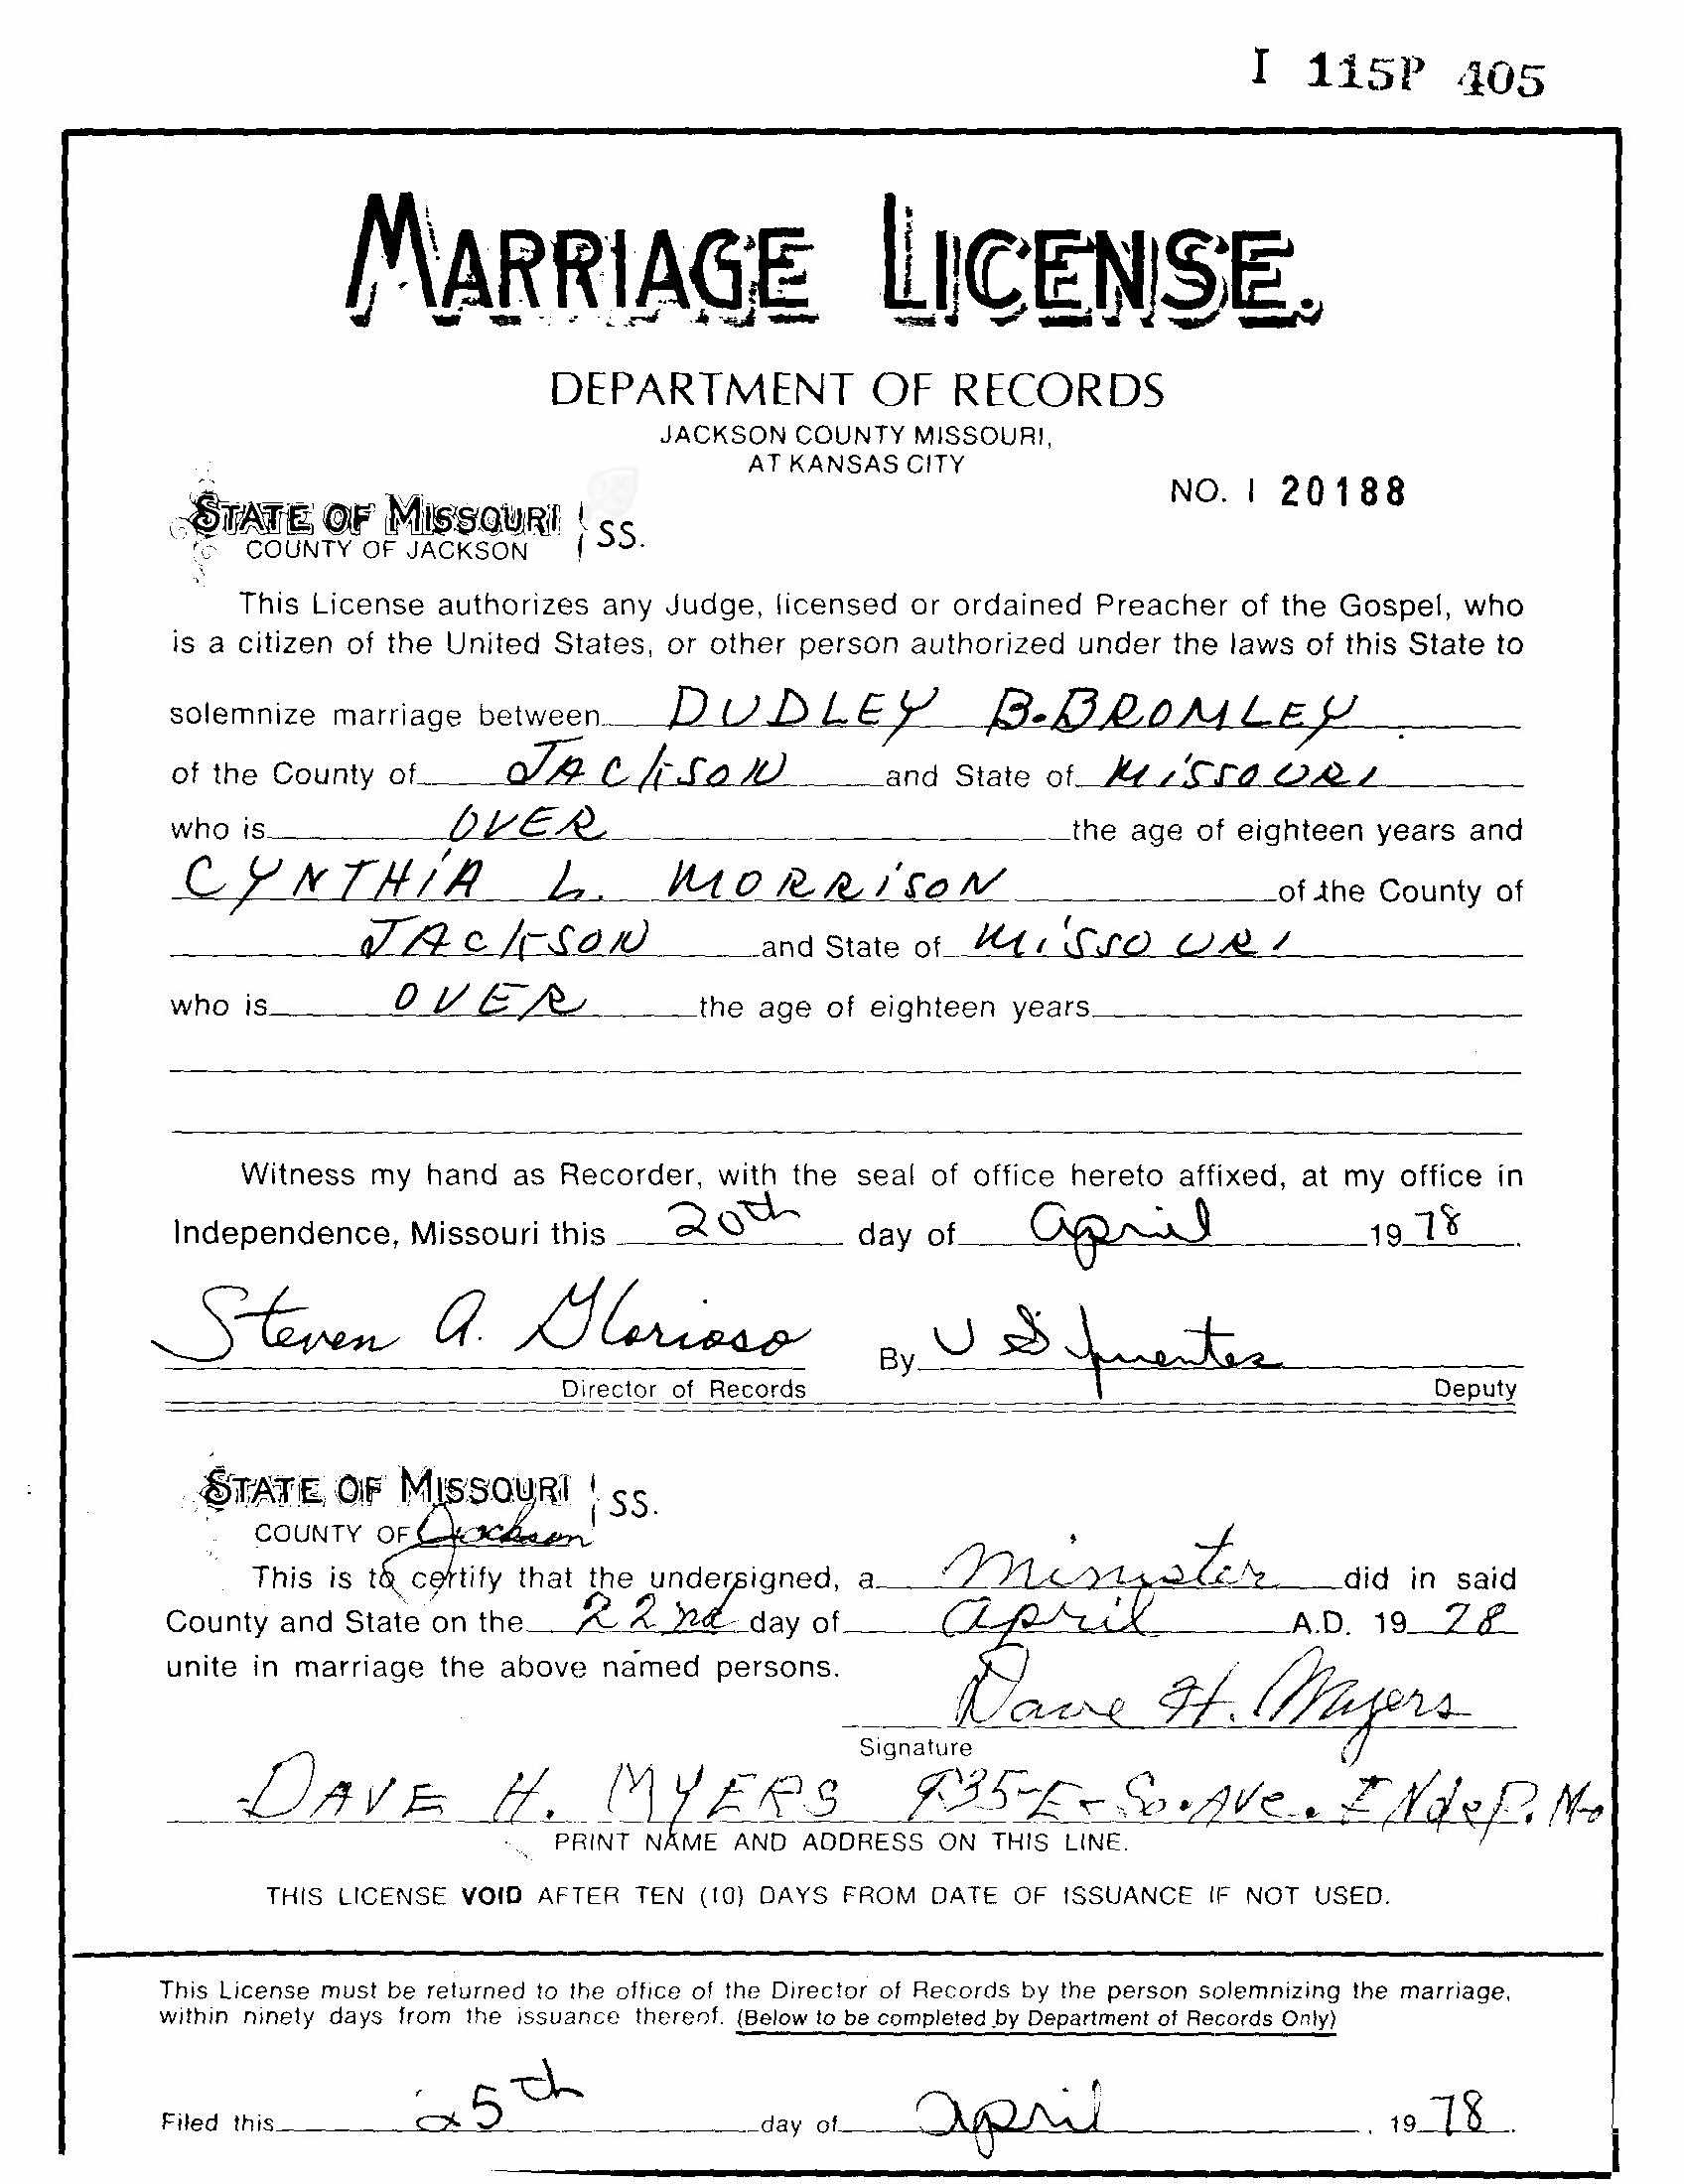 I 115P 405
MARRIAGE LICENSE.
DEPARTMENT OF RECORDS
JACKSON COUNTY MISSOURI,
AT KANSAS CITY
NO. I 20188
STATE OF MISSOURI
COUNTY OF JACKSON
SS.
This License authorizes any Judge, licensed or ordained Preacher of the Gospel, who
is a citizen of the United States, or other person authorized under the laws of this State to
solemnize marriage between DUDLEY B. BROMLEY
of the County of JACKSON and State of MISSOURI
who is OVER the age of eighteen years and
CYNTHIA L. MORRISON of the County of
JACKSON and State of MISSOURI
who is OVER the age of eighteen years
Witness my hand as Recorder, with the seal of office hereto affixed, at my office in
Independence, Missouri this 20th day of April 1978.
Steven A. Glorioso By
Director of Records Deputy
STATE OF MISSOURI
COUNTY OF Jackson
SS.
This is to certify that the undersigned, a Minister did in said
County and State on the 22nd day of April A.D. 1978
unite in marriage the above named persons.
Dave H. Myers
Signature
DAVE H. MYERS 935-E-So. Ave. INdeP. Mo
PRINT NAME AND ADDRESS ON THIS LINE.
THIS LICENSE VOID AFTER TEN (10) DAYS FROM DATE OF ISSUANCE IF NOT USED.
This License must be returned to the office of the Director of Records by the person solemnizing the marriage,
within ninety days from the issuance thereof. (Below to be completed by Department of Records Only)
Filed this 25th day of April, 1978.